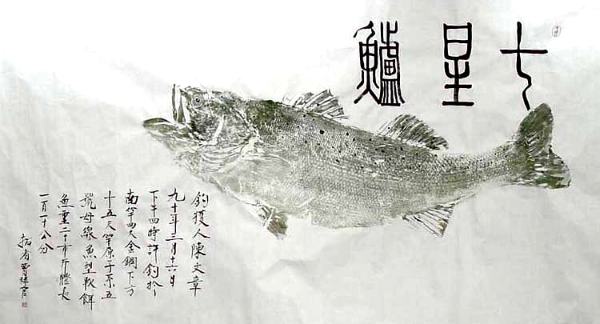 七星鱸
釣獲人陳文章
九十年三月十六日
下午四時許釣於
南竿四大金鋼下方
十五尺竿原子系五
號母線魚型軟餌
魚重二十市斤體長
一百一十公分
拓者曹